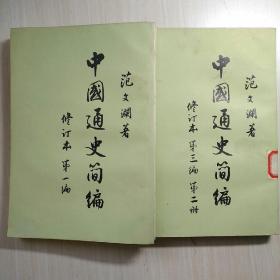 范文澜著
中國通史简编
修订本 第一编
范文澜著
中國通史简编
修订本 第三编 第二册